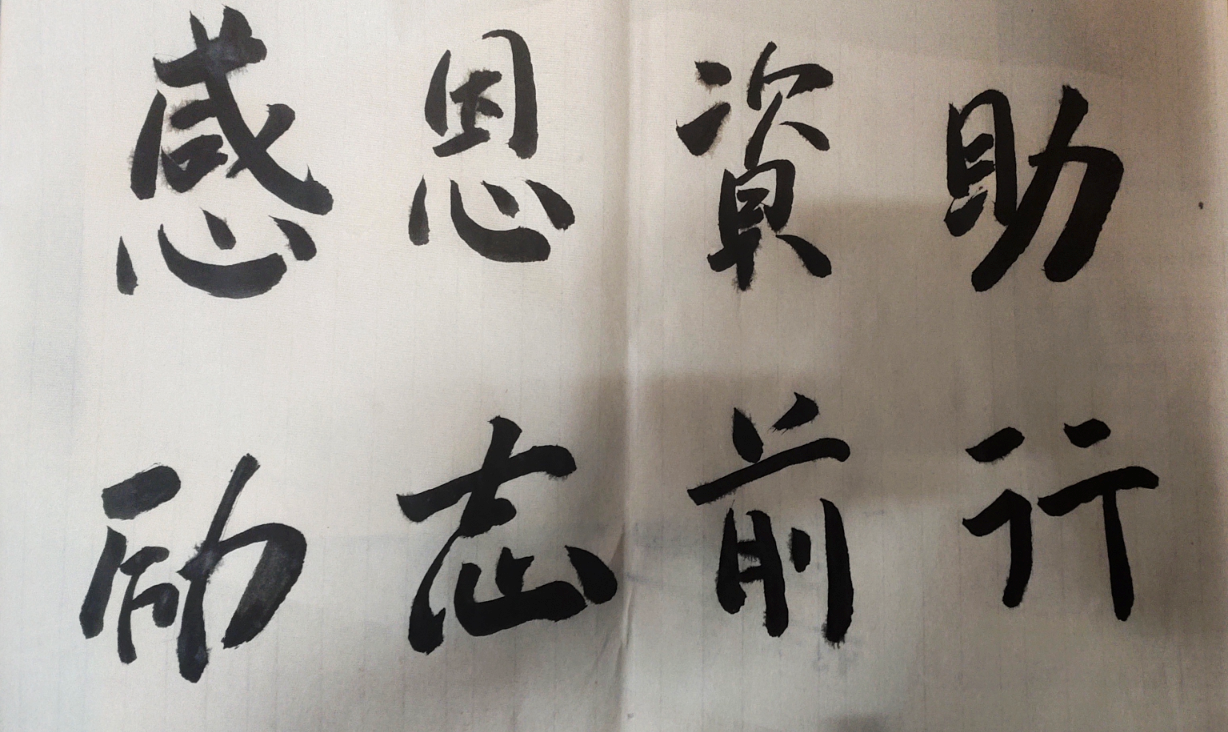 感恩資助
励志前行